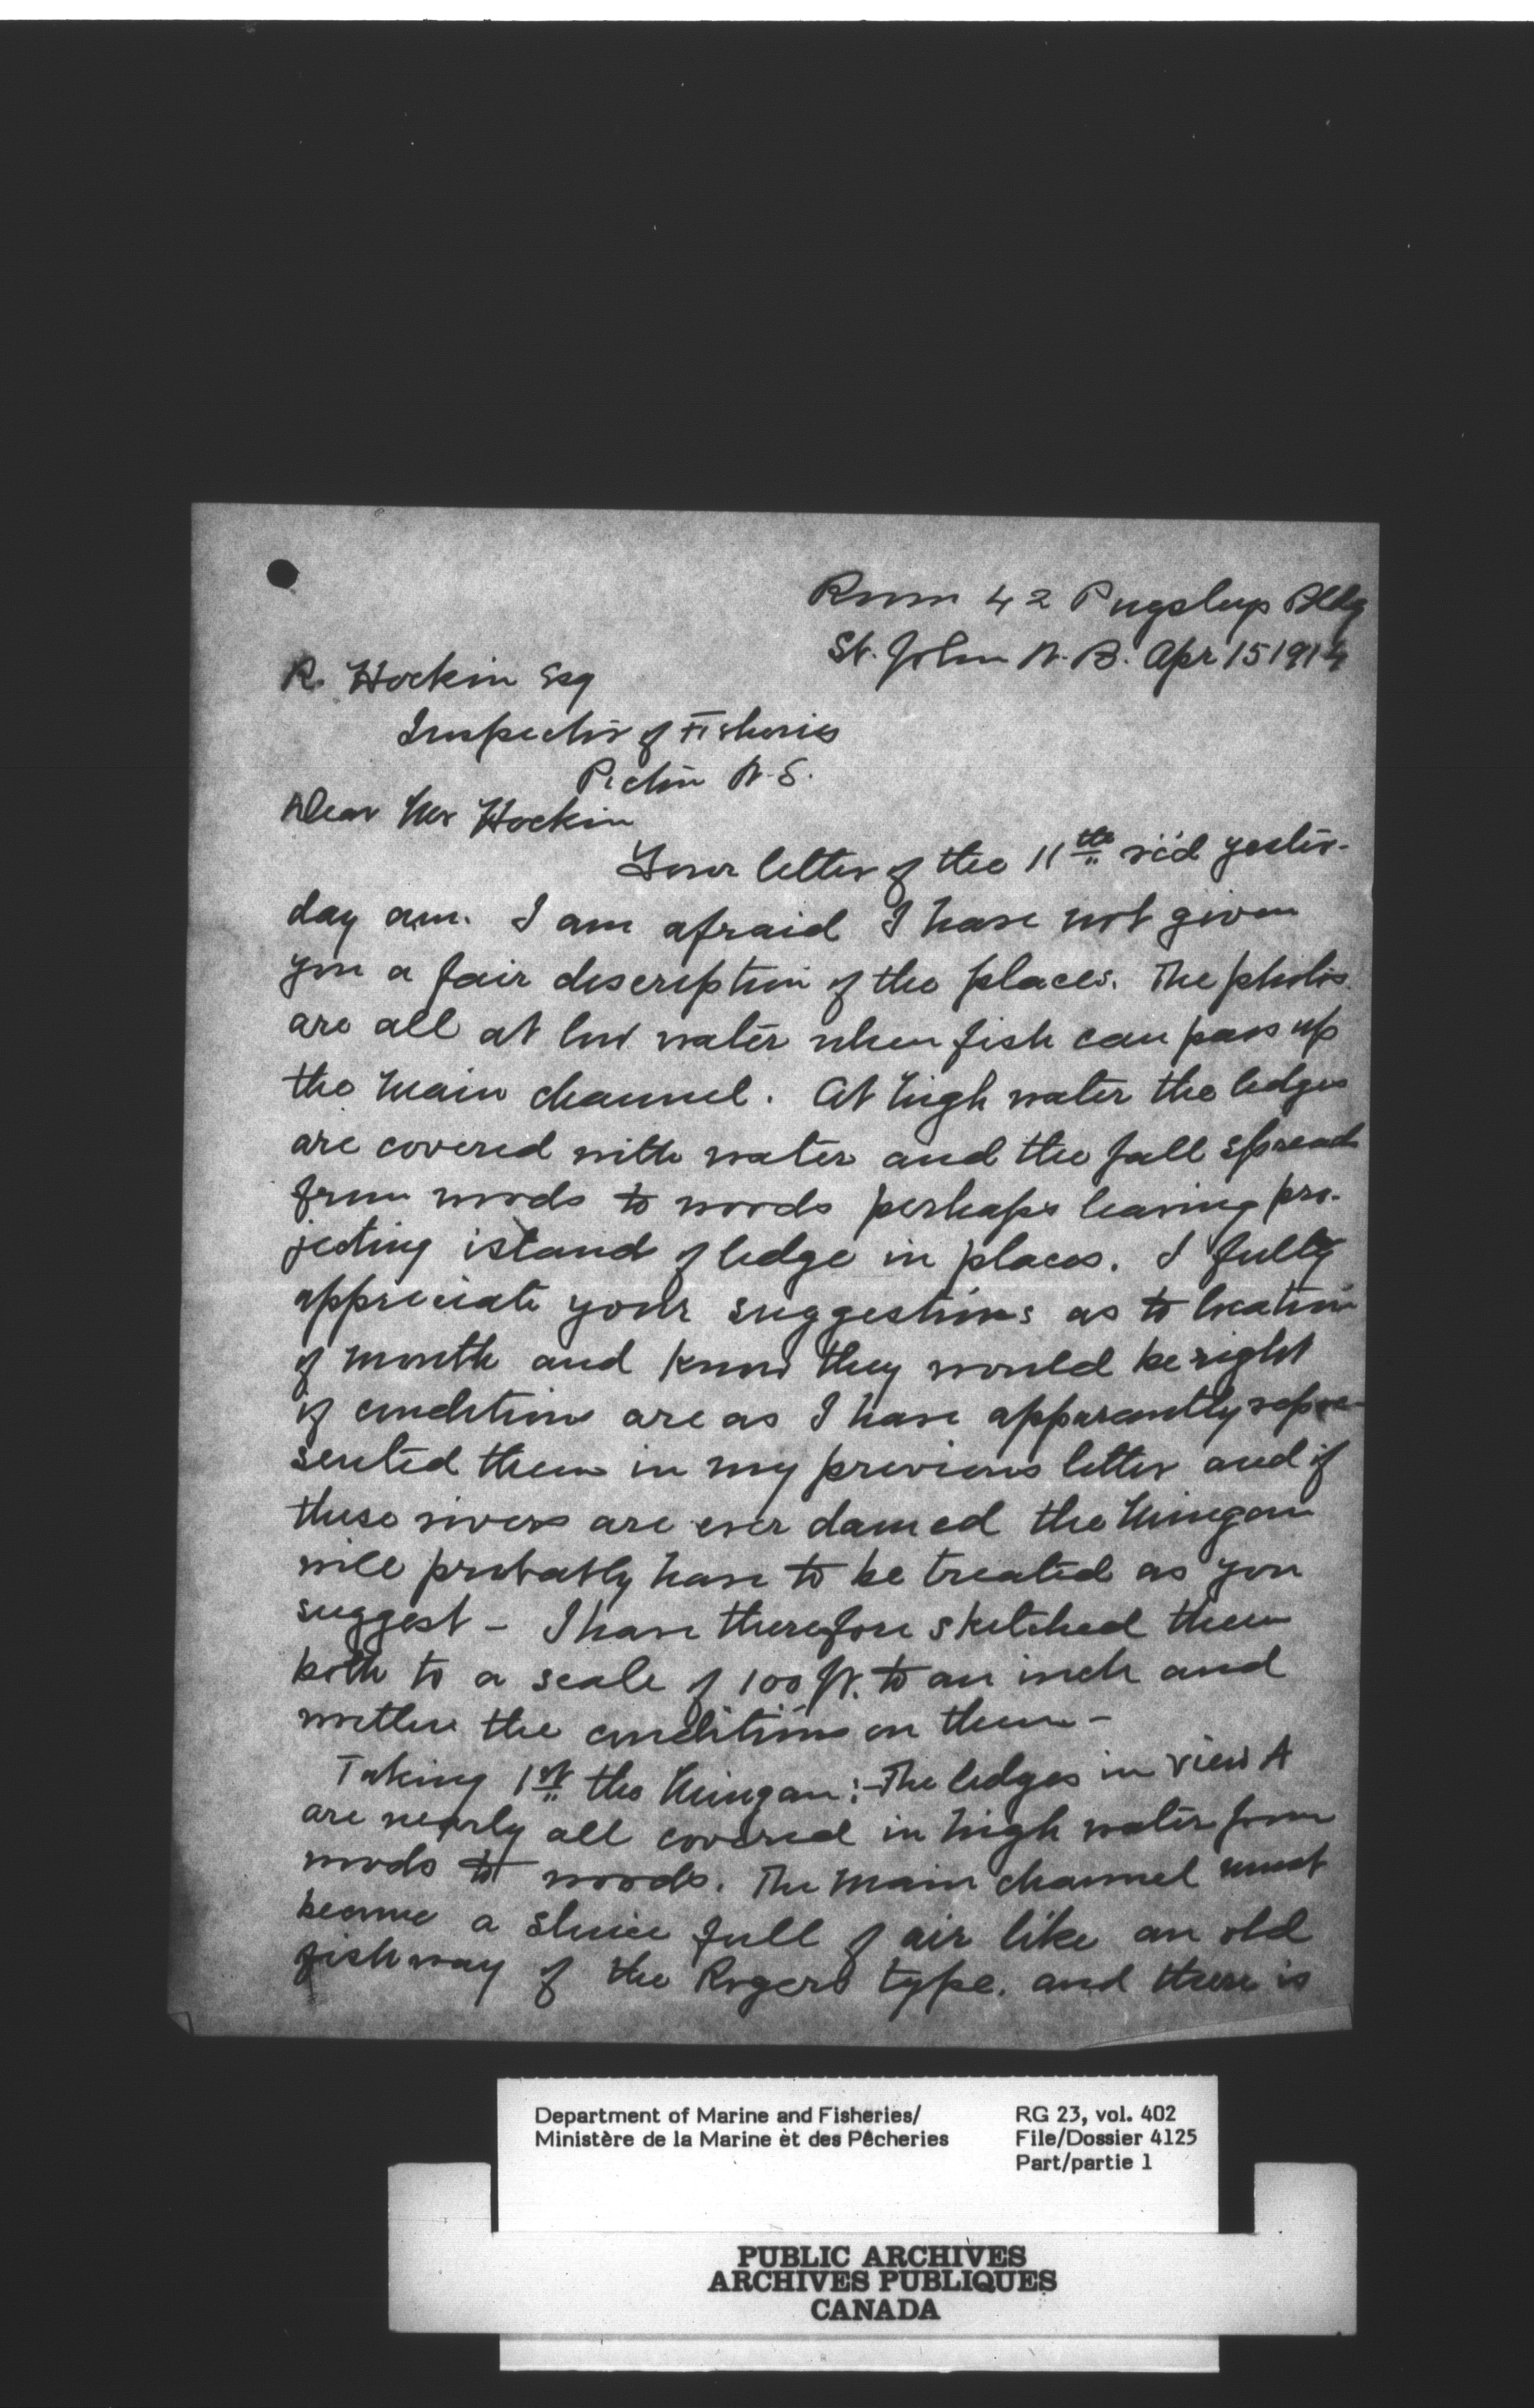 Room 42 Pugsley Bldg
St. John N. B. Apr 15 1914
R. Hockin Esq
Inspector of Fisheries
Pictou N. S.
Dear Mr Hockin
Your letter of the 11th rc'd yester-
day am. I am afraid I have not given
you a fair description of the places. The photos
are all at low water when fish can pass up
the main channel. At high water the ledges
are covered with water and the fall spreads
from woods to woods perhaps leaving pro-
jecting island of ledge in places. I fully
appreciate your suggestions as to location
of mouth and know they would be right
if conditions are as I have apparantly repre-
sented them in my previous letter and if
these rivers are ever damed the Mingan
will probably have to be treated as you
suggest - I have therefore sketched them
both to a scale of 100 ft. to an inch and
written the conditions on them -
Taking 1st the Mingan:- The ledges in view A
are nearly all covered in high water from
woods to woods. The main channel must
become a sluice full of air like an old
fishway of the Rogers type. and there is
Department of Marine and Fisheries/
Ministère de la Marine èt des Pêcheries
RG 23, vol. 402
File/Dossier 4125
Part/partie 1
PUBLIC ARCHIVES
ARCHIVES PUBLIQUES
CANADA